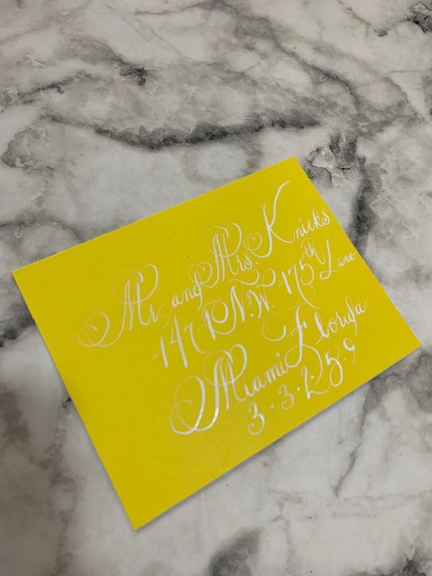 Mr. and Mrs. Knicks
1471 N.W. 175th Lane
Miami Florida.
3.3.2.5.9.